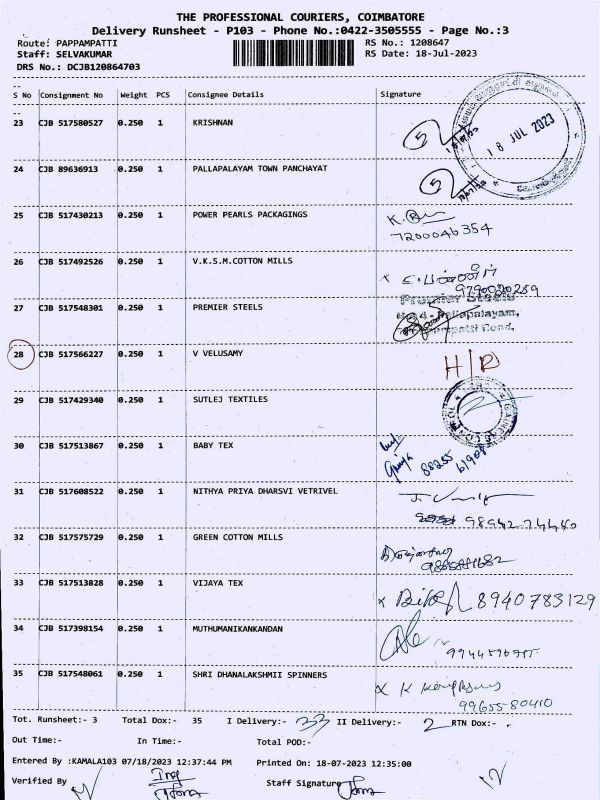 THE PROFESSIONAL COURIERS, COIMBATORE
Delivery Runsheet - P103 - Phone No.:0422-3505555 - Page No.:3
Route: PAPPAMPATTI RS No.: 1208647
Staff: SELVAKUMAR RS Date: 18-Jul-2023
DRS No.: DCJB120864703
S No Consignment No Weight PCS Consignee Details Signature
23 CJB 517580527 0.250 1 KRISHNAN
18 JUL 2023
24 CJB 89636913 0.250 1 PALLAPALAYAM TOWN PANCHAYAT
25 CJB 517430213 0.250 1 POWER PEARLS PACKAGINGS
7200046354
26 CJB 517492526 0.250 1 V.K.S.M.COTTON MILLS
27 CJB 517548301 0.250 1 PREMIER STEELS Premier Steels
28 CJB 517566227 0.250 1 V VELUSAMY
29 CJB 517429340 0.250 1 SUTLEJ TEXTILES
30 CJB 517513867 0.250 1 BABY TEX
31 CJB 517608522 0.250 1 NITHYA PRIYA DHARSVI VETRIVEL
98942-74440
32 CJB 517575729 0.250 1 GREEN COTTON MILLS
33 CJB 517513828 0.250 1 VIJAYA TEX 8940783129
34 CJB 517398154 0.250 1 MUTHUMANIKANKANDAN
35 CJB 517548061 0.250 1 SHRI DHANALAKSHMII SPINNERS
99655-80410
Tot. Runsheet:- 3 Total Dox:- 35 I Delivery:- 33 II Delivery:- 2 RTN Dox:- .
Out Time:- In Time:- Total POD:-
Entered By :KAMALA103 07/18/2023 12:37:44 PM Printed On: 18-07-2023 12:35:00
Verified By Staff Signature